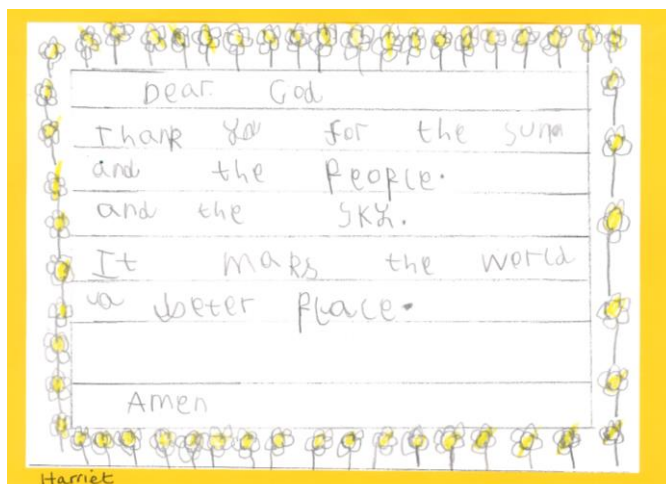 Dear God
Thank yo for the sun
and the people.
and the sky.
It maks the world
a beter place.
Amen
Harriet